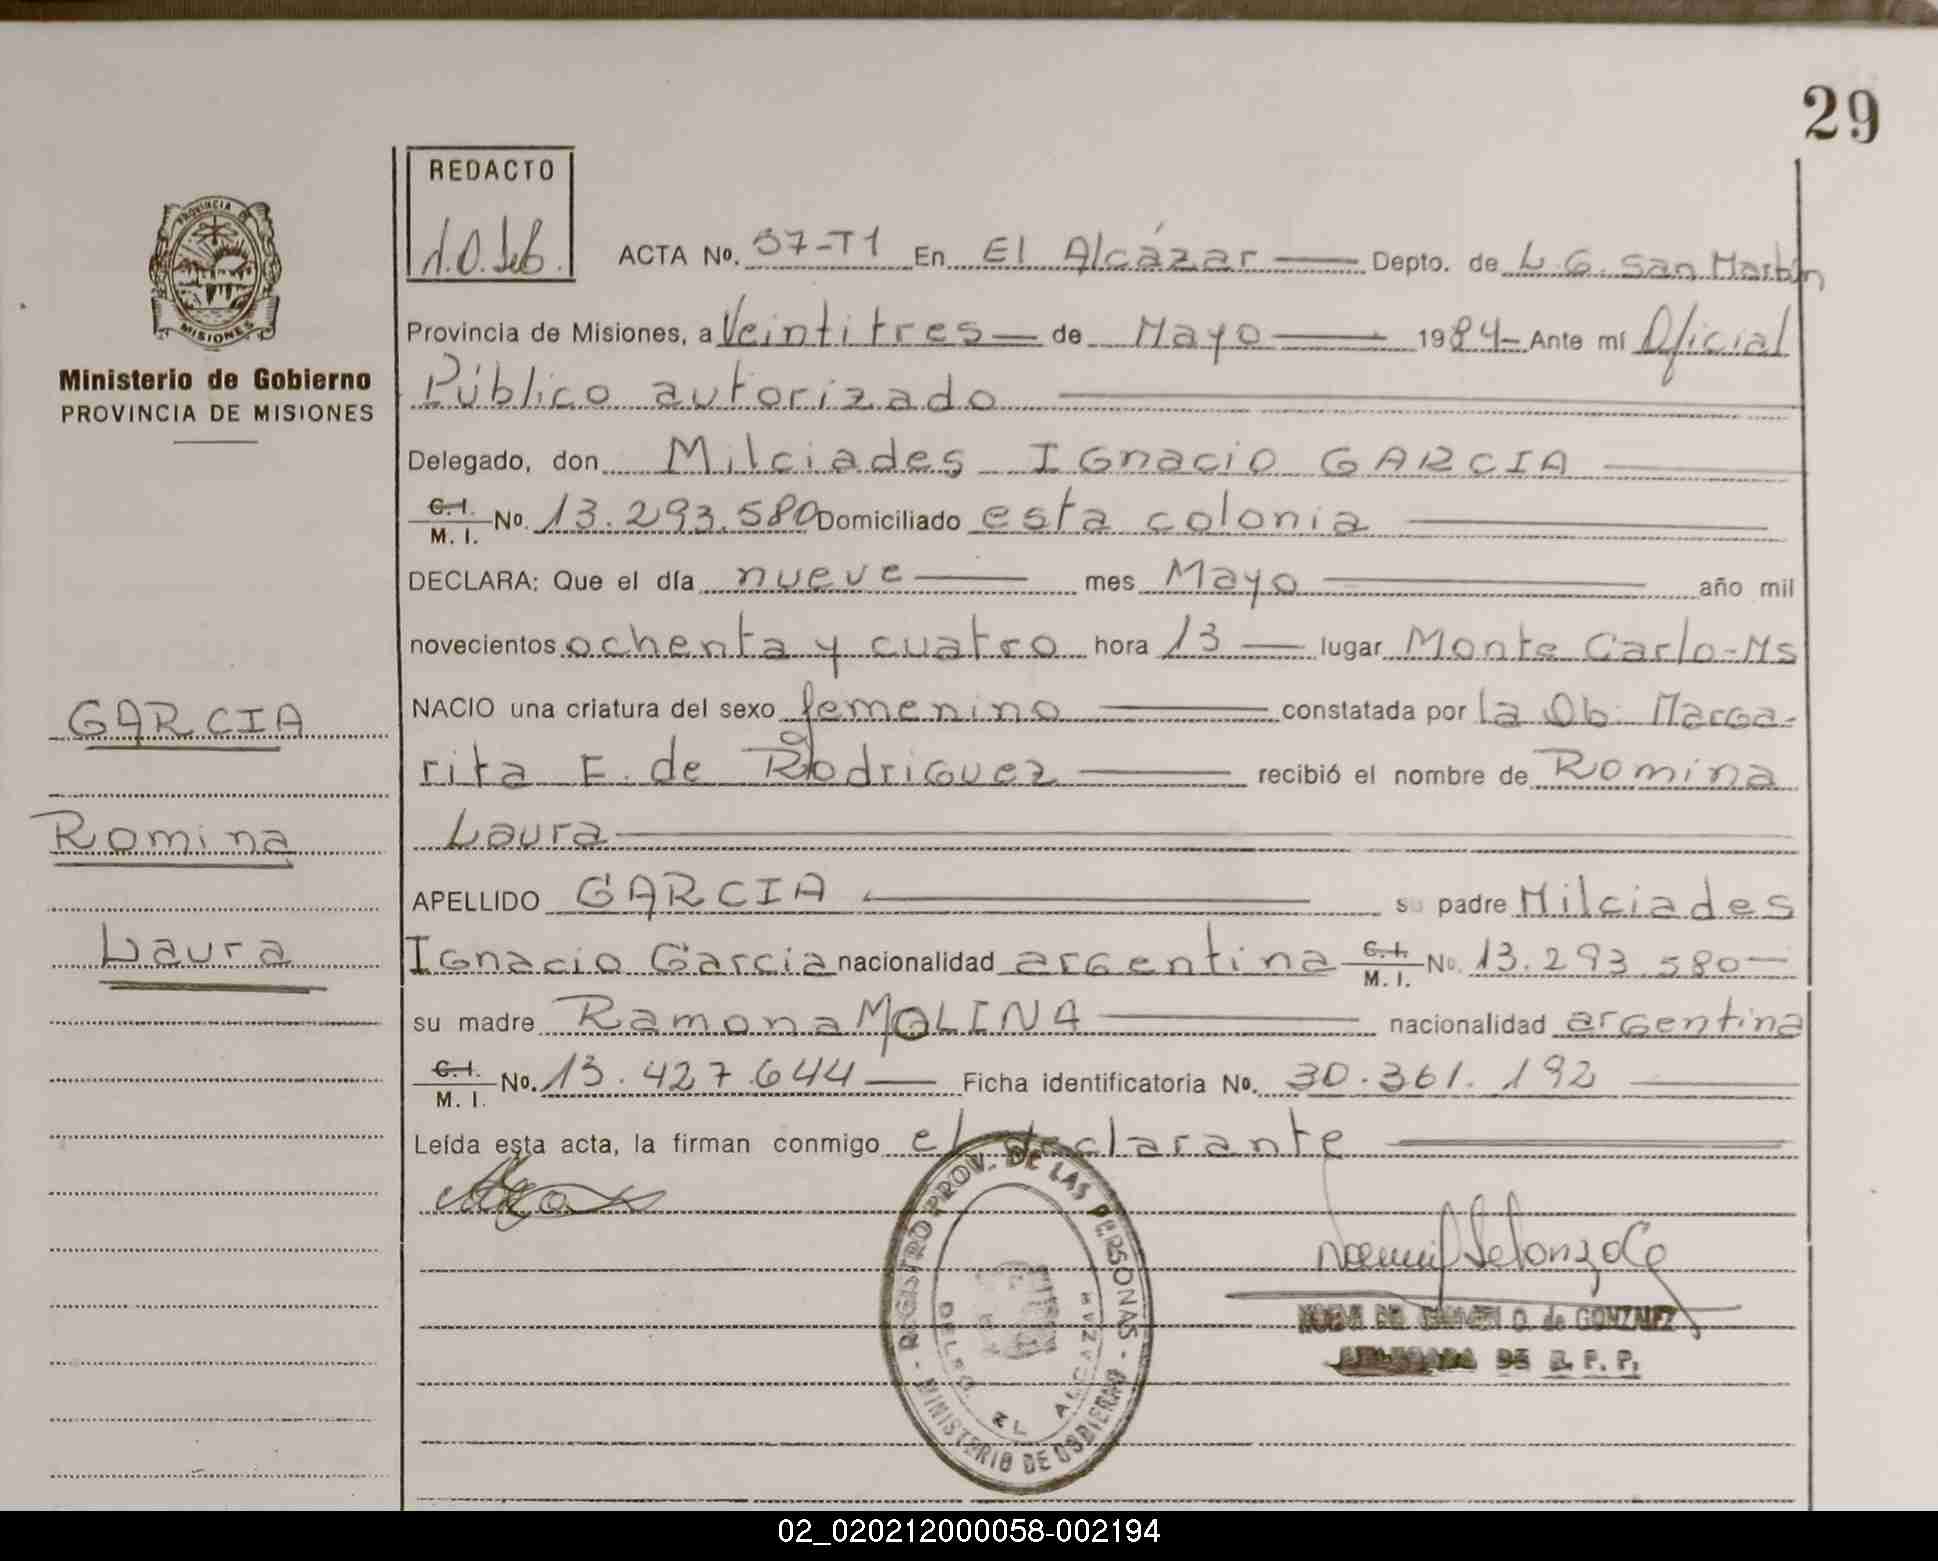 29
REDACTO
PROVINCIA DE
MISIONES
Ministerio de Gobierno
PROVINCIA DE MISIONES
ACTA No. 37-T1 En El Alcázar Depto. de L. G. San Martín
Provincia de Misiones, a Veintitres de Mayo 1984 Ante mí Oficial
Público autorizado
Delegado, don Milciades Ignacio GARCIA
C. I. M. I. No. 13.293.580 Domiciliado esta colonia
DECLARA: Que el día nueve mes Mayo año mil
novecientos ochenta y cuatro hora 13 lugar Monte Carlo-Ms
NACIO una criatura del sexo femenino constatada por la Ob. Marga-
rita F. de Rodriguez recibió el nombre de Romina
Laura
APELLIDO GARCIA su padre Milciades
Ignacio Garcia nacionalidad argentina C. I. M. I. No. 13.293.580
su madre Ramona MOLINA nacionalidad argentina
C. I. M. I. No. 13.427.644 Ficha identificatoria No. 30.361.192
Leída esta acta, la firman conmigo el declarante
GARCIA
Romina
Laura
REGISTRO PROV. DE LAS PERSONAS - MINISTERIO DE GOBIERNO
EL ALCAZAR
O. de GONZALEZ
DE R. P. P.
02_020212000058-002194